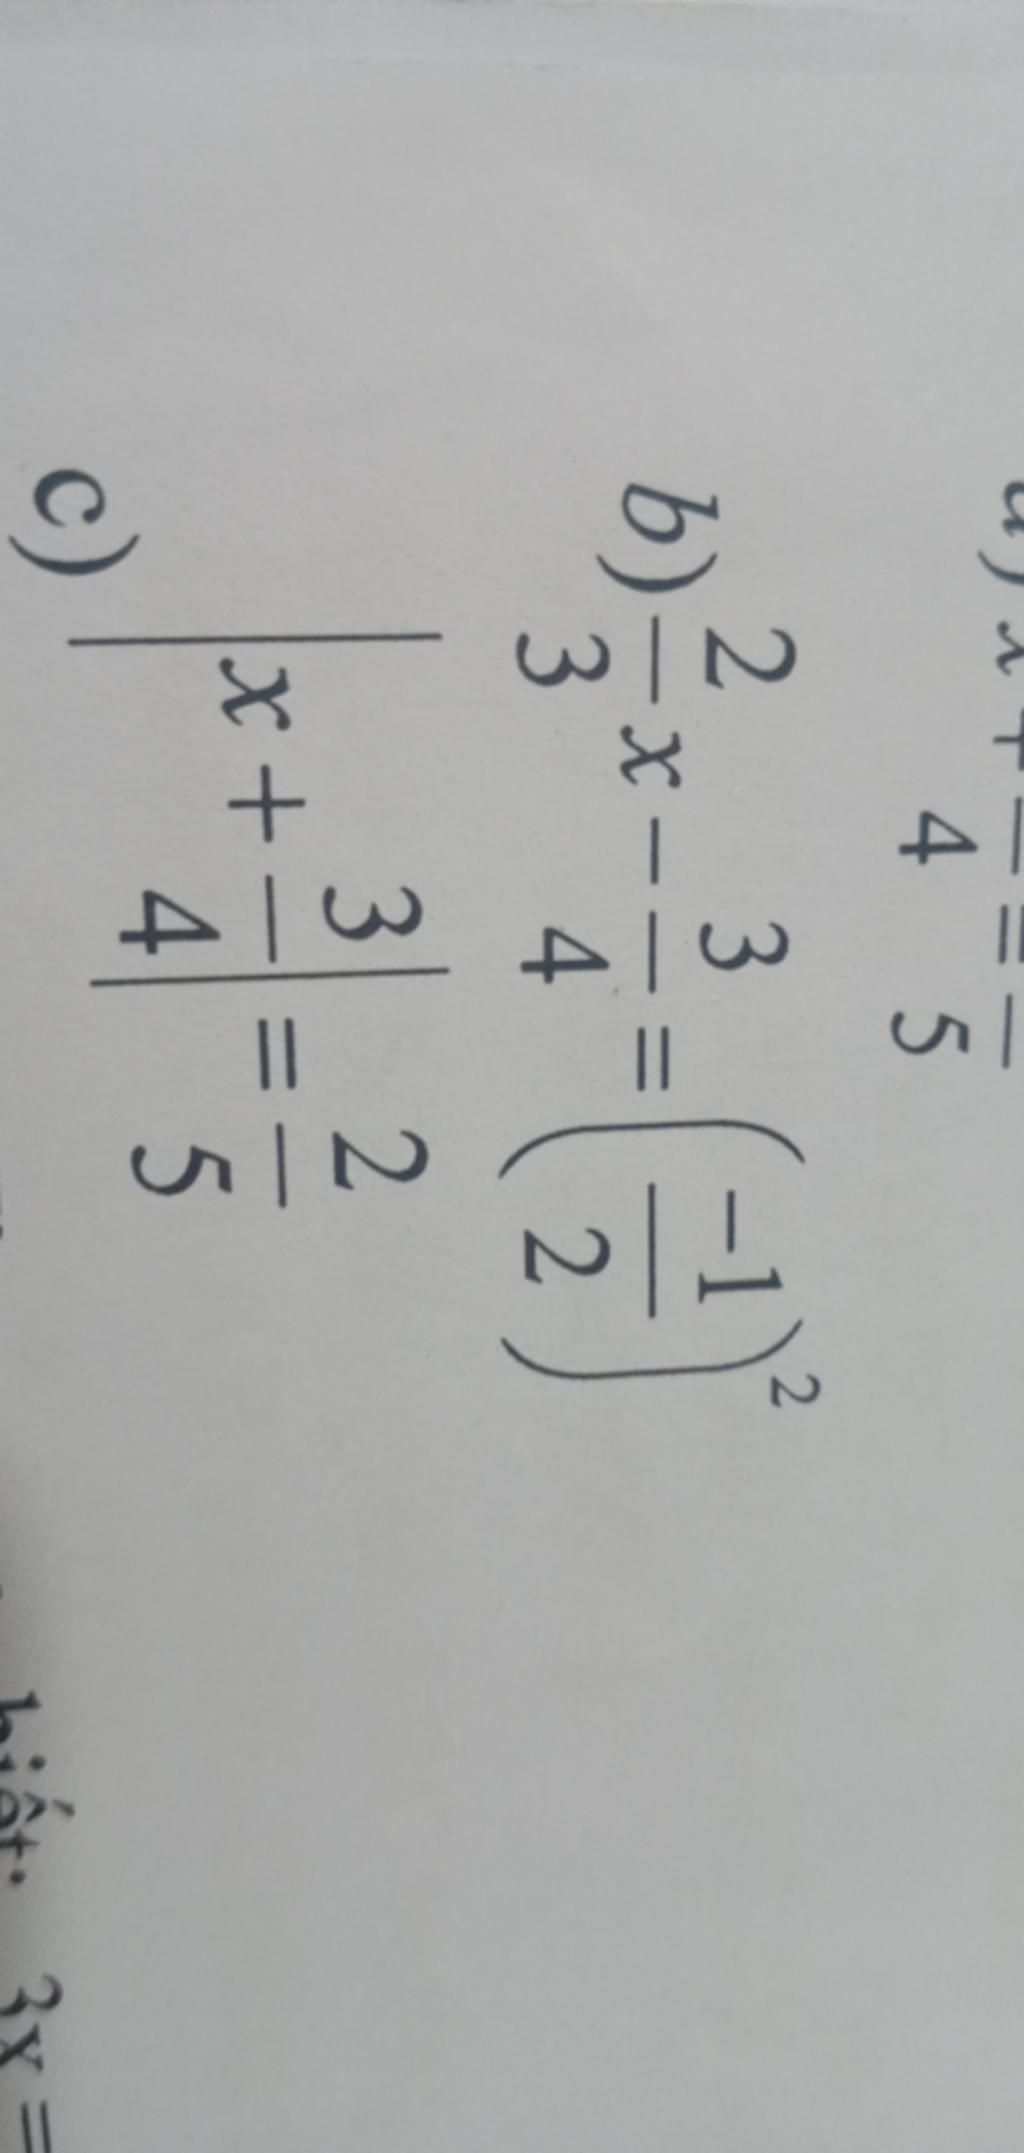 4 = 5
b) \frac{2}{3}x - \frac{3}{4} = \left(\frac{-1}{2}\right)^2
c) \left|x + \frac{3}{4}\right| = \frac{2}{5}
biết. 3x =